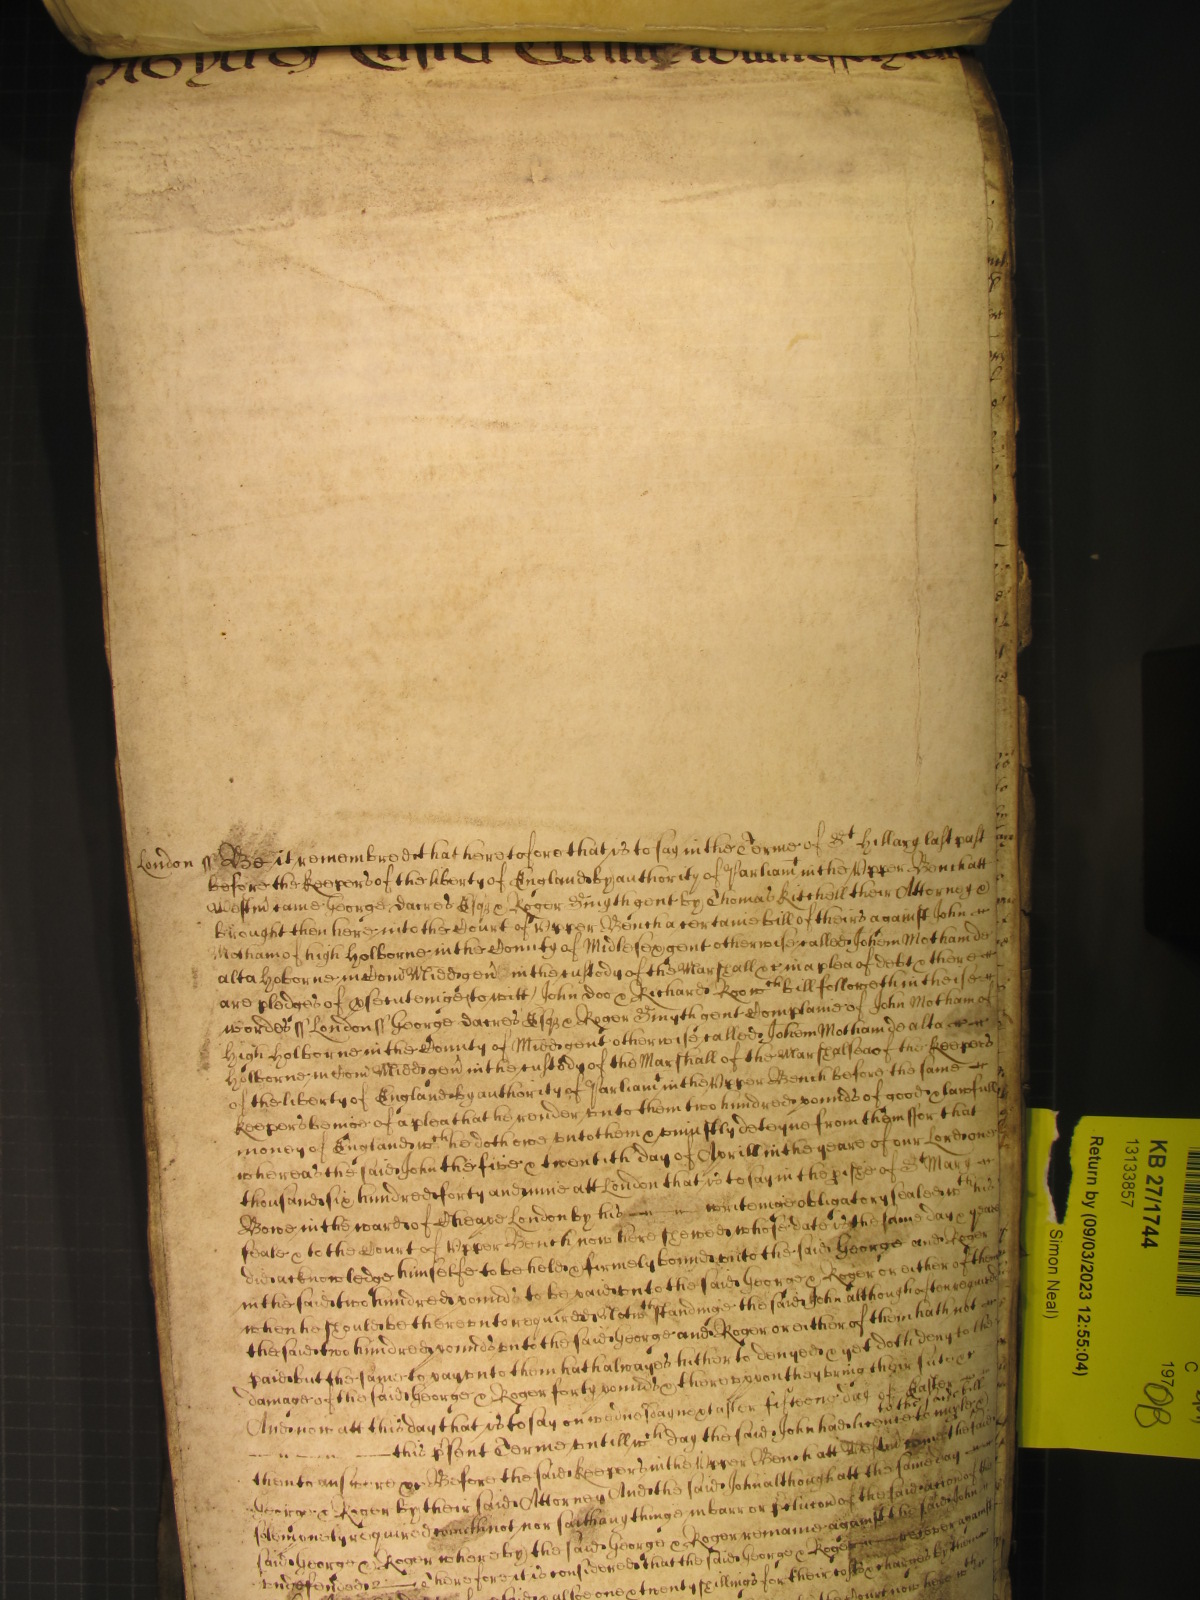 London ss Be it remembred that heretofore that is to say in the Terme of St Hillary last past
before the Keepers of the liberty of England by authority of Parliamt in the Upper Bench att
Westm came George dacres Esqr & Roger Smyth gent by Thomas Kitchell their Attorney &
brought then here into the Court of Upper Bench a certaine bill of theirs against John
Motham of high Holborne in the County of Midlesex gent otherwise called Johem Motham de
alta Holborne in Com Midd gen in the custody of the Marshall &c in a plea of debt & there
are pledges of psecuteinge to witt John doo & Richard Roo wch bill followeth in theise
wordes ss London ss George dacres Esqr & Roger Smyth gent Complaine of John Motham of
High Holborne in the County of Midd gent otherwise called Johem Motham de alta
Holborne in Com Midd gen in the custody of the Marshall of the Marshalsea of the Keepers
of the liberty of England by authority of Parliamt in the Upper Bench before the same
Keepers beinge of a plea that he render unto them two hundred pounds of good & lawfull
money of England wch he doth owe unto them & uniustly deteyne from them for that
whereas the said John the five & twentith day of Aprill in the yeare of our Lord one
thousand six hundred forty and nine att London that is to say in the pishe of St Mary
Bowe in the ward of Cheape London by his writeinge obligatory sealed wth his
seale & to the Court of Upper Bench now here shewed whose date is the same day & yeare
did acknowledge himselfe to be held & firmely bound unto the said George and Roger
in the said two hundred pounds to be paid unto the said George & Roger or either of them
when he should be thereunto required Notwthstandinge the said John although often required
the said two hundred pounds unto the said George and Roger or either of them hath not
paid but the same to pay unto them hath alwayes hitherto denyed & yet doth deny to the
damage of the said George & Roger forty pounds & thereupon they bring their suite &c
And now att this day that is to say on wednesday next after fifteene day of Easter
this psent Terme untill wch day the said John had licence to imparle to the said bill
then to answere &c Before the said Keepers in the Upper Bench att Westm come the said
George & Roger by their said Attorney And the said John although att the same day
solemnely required cometh not nor saith any thinge in barr or pclucon of the said accion of the
said George & Roger whereby the said George & Roger remaine against the said John
undefended Therefore it is considered that the said George & Roger recover against
alsoe one & twenty shillings for their costs & charges by
the Court now here
KB 27/1744
13133857
Return by (09/03/2023 12:55:04)
Simon Neal)
197